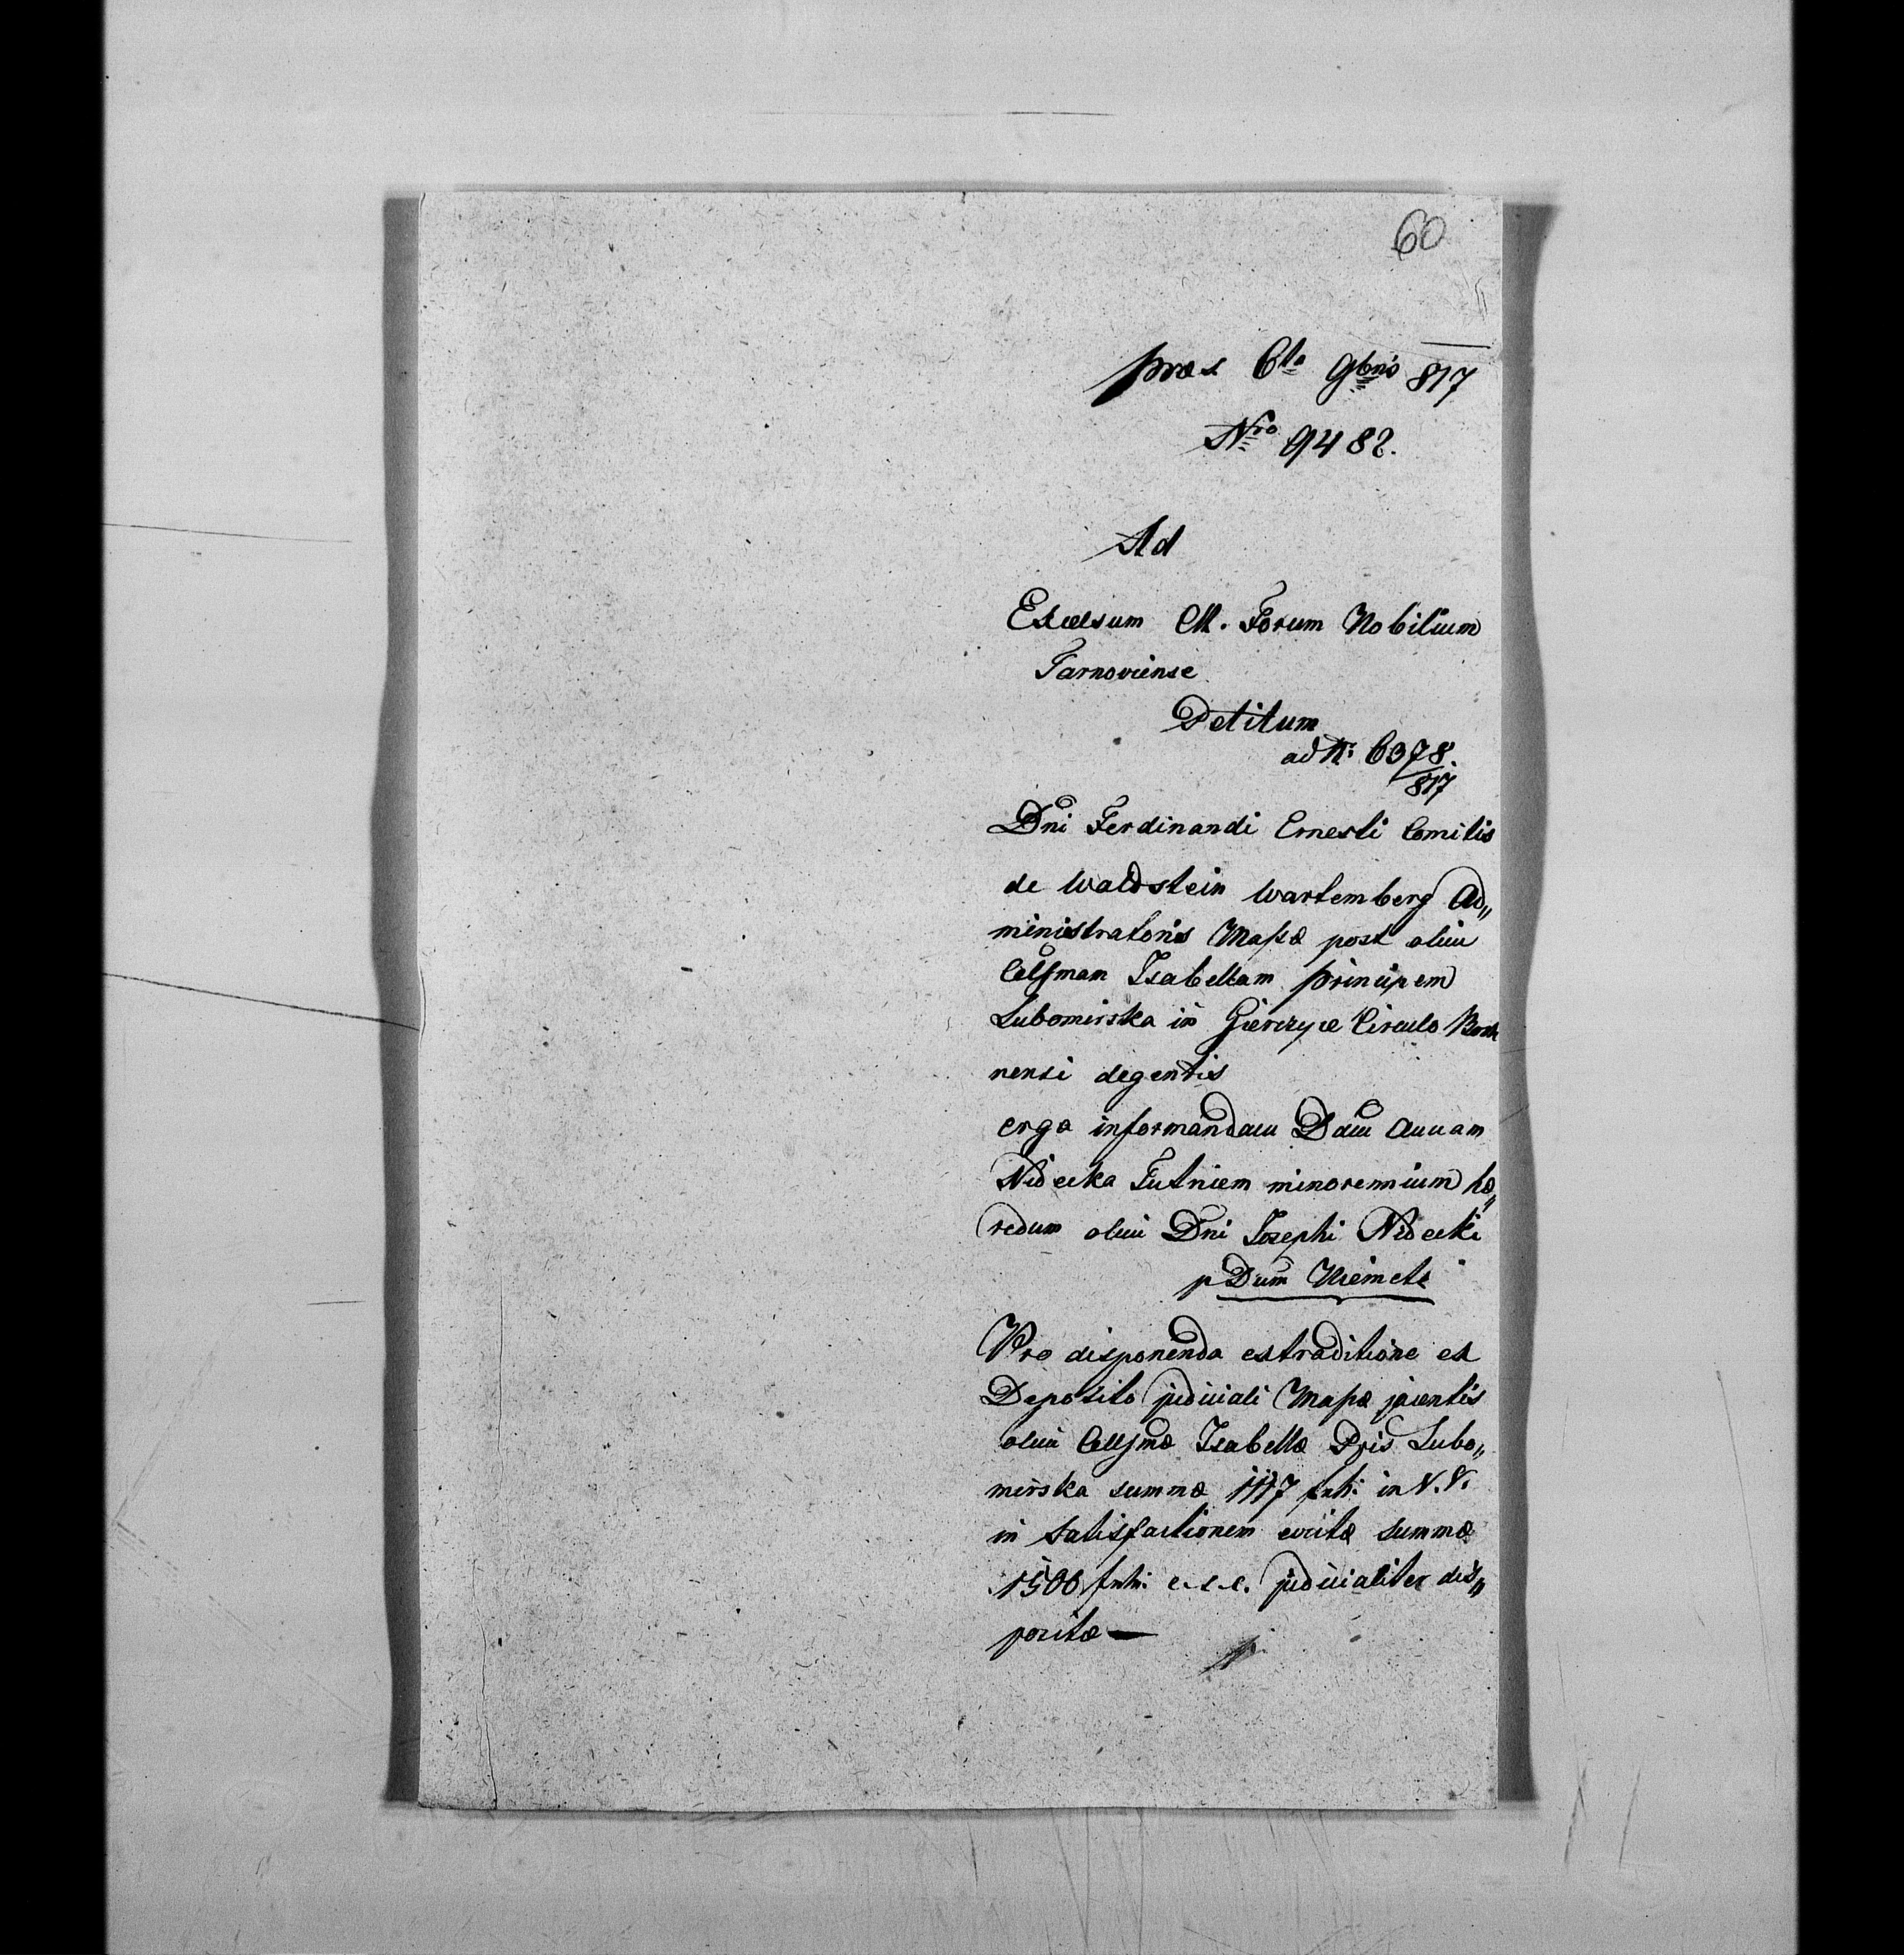 60
præs 6ta 9bris 817
Nro 9482.
Ad
Excelsum C.R. Forum Nobilium
Tarnoviense
Petitum
ad Nr: 6378.
817
Dni Ferdinandi Ernesti Comitis
de Waldstein Wartemberg Ad„
ministratoris Massæ post olim
Celssmam Isabellam Principem
Lubomirska in Gierczyce Circulo Boch
nensi degentis
erga informandam Dam Annam
Nidecka Tutricem minorennium hæ„
redum olim Dni Josephi Nidecki
p Dum
Pro disponenda extraditione ex
Deposito judiciali Massæ jacentis
olim Celssmæ Isabellæ Pris Lubo„
mirska summæ 1117 fnh: in V.V.
in satisfactionem evictæ summæ
1500 fnh: c.s.c. judicialiter dis„
positæ —